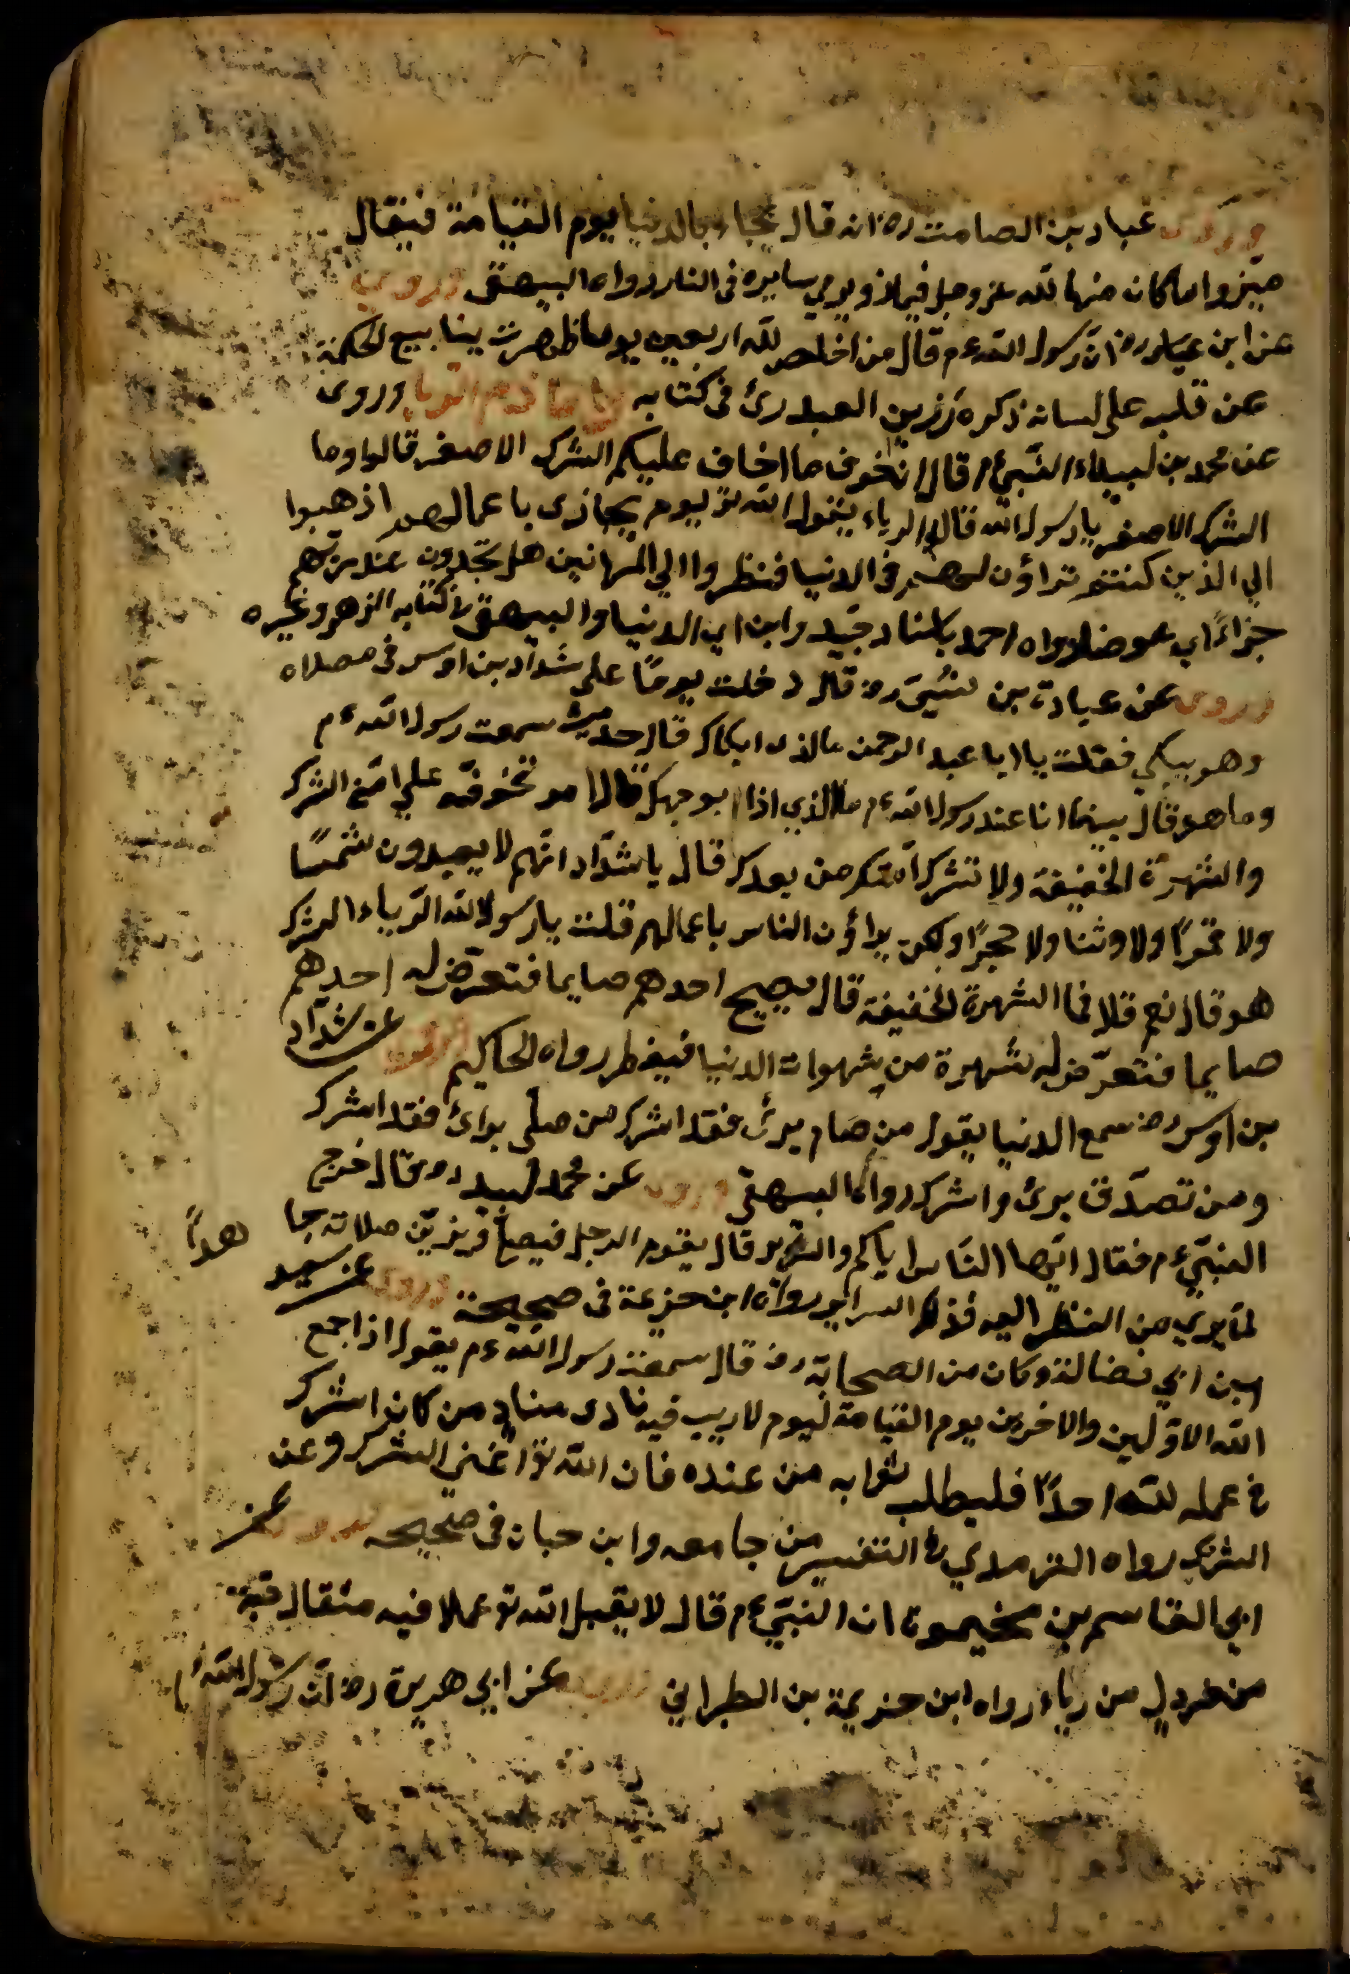 وروى عباد بن الصامت رض انه قال يجاء بالدنيا يوم القيامة فيقال
ميزوا ما كان منها لله عز وجل فيماز ويرمي سايره فى النار رواه البيهقى وروى
عن ابن عباس رض ان رسول الله ءم قال من اخلص لله اربعين يوما ظهرت ينابيع الحكمة
عن قلبه على لسانه ذكره رزين العبدرى فى كتابه وروى
عن محمد بن لبيد ان النبى قال ان اخوف ما اخاف عليكم الشرك الاصغر قالوا وما
الشرك الاصغر يا رسول الله قال الرياء يقول الله تو يوم يجازى باعمالهم اذهبوا
الي الذين كنتم تراؤن لهم فى الدنيا فنظروا الي هل تجدون عندهم
جزاءً اي عوضا رواه احمد باسناد جيد وابن ابي الدنيا والبيهقى فى كتابه الزهد وغيره
وروى عن عبادة بن نسَى رض قال دخلت يومًا على شداد بن اوس فى مصلاه
وهو يبكي فقلت يا ابا عبد الرحمن ما الذى ابكاك قال حديث سمعت رسول الله ءم
وما هو قال بينما انا عند رسول الله ءم الذي اذا بوجهك قال امر تخوفته على امتي الشرك
والشهرة الخفيفة ولا تشرك امتك من بعدك قال يا شداد انهم لا يعبدون شمسًا
ولا قمرًا ولا وثنا ولا حجرًا ولكن يراؤن الناس باعمالهم قلت يا رسول الله الرياء الشرك
هو قال نعم قلا فما الشهرة الخفيفة قال يصبح احدهم صايما فتعرض له احدهم
صايما فتعرض له شهرة من شهوات الدنيا فيفطر رواه الحاكم عن شداد
بن اوس رض سمع الدنيا يقول من صام يرئ فقد اشرك من صلى يرائ فقد اشرك
ومن تصدق يرئ واشرك رواه البيهقى وروى عن محمد لبيد رض قال خرج
النبي ءم فقال ايها الناس اياكم والشرك قال يقوم الرجل فيصلي فيزين صلاته جا هدًا
لما يري من النظر اليه فذلك السراير رواه ابن خزيمة فى صحيحة وروى عن سعيد
ابن ابي فضالة وكان من الصحابة رض قال سمعت رسول الله ءم يقول اذا جمع
الله الاولين والاخرين يوم القيامة ليوم لا ريب فيه نادى مناد من كان اشرك
فى عمله لله احدًا فليطلب ثوابه من عنده فان الله تو اغني الشرك وعن
الشرك رواه الترمدي فى التفسير من جامعه وابن حبان فى صحيحه وروى عن
ابي القاسم بن مخيمرة ان النبي ءم قال لا يقبل الله تو عملا فيه مثقال حبة
من خردل من رياء رواه ابن خزيمة بن الطبراني وروى عن ابي هريرة رض ان رسول الله